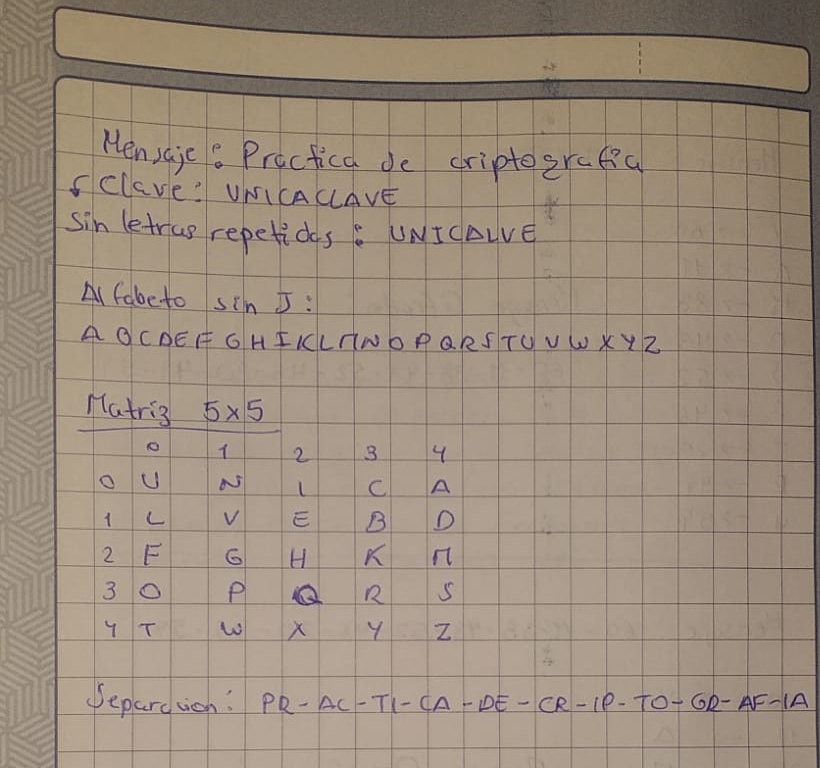 Mensaje: Practica de criptografia
Clave: UNICACLAVE
Sin letras repetidas: UNICALVE
Alfabeto sin J:
A B C D E F G H I K L M N O P Q R S T U V W X Y Z
Matriz 5x5
0 1 2 3 4
0 U N I C A
1 L V E B D
2 F G H K M
3 O P Q R S
4 T W X Y Z
Separacion: PR-AC-TI-CA-DE-CR-IP-TO-GR-AF-IA